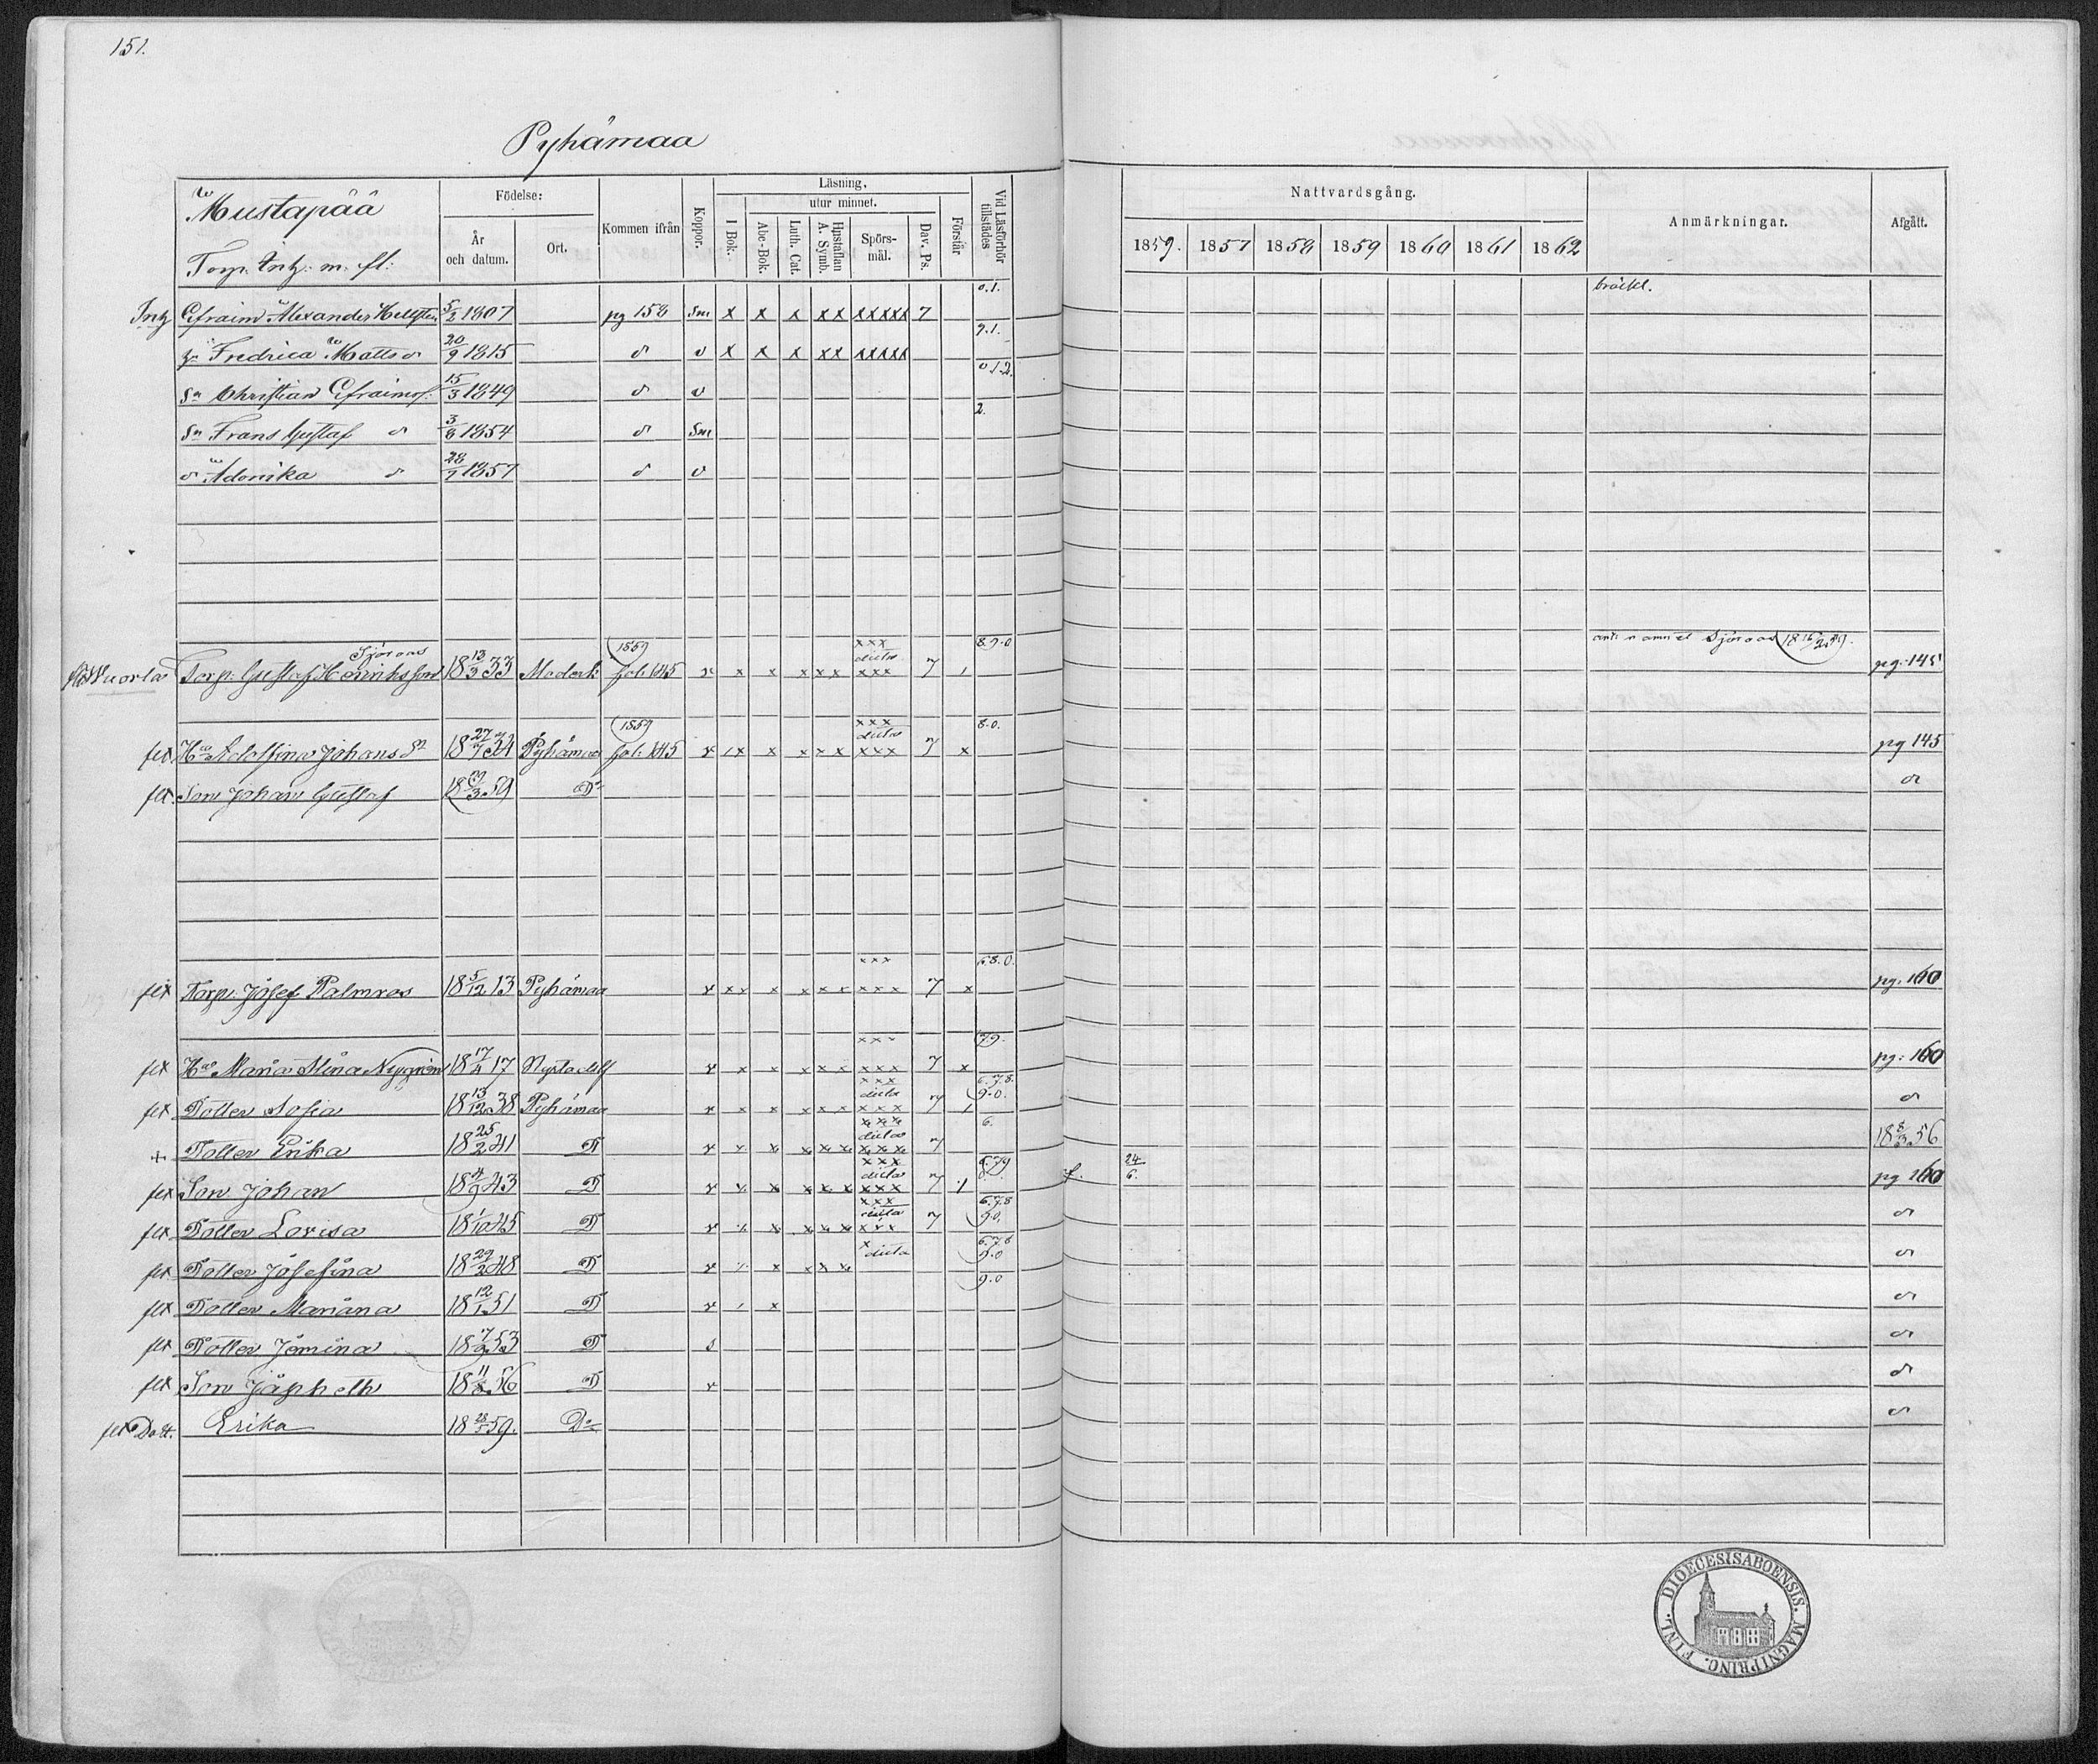 151.
Pyhämaa
Mustapää
Torp. Inh: m. fl:
Födelse:
År och datum.
Ort.
Kommen ifrån
Koppor.
Läsning,
I Bok.
utur minnet.
Abc-Bok.
Luth. Cat.
Hustaflan A. Symb.
Spörsmål.
Dav. Ps.
Förstår
Vid Läsförhör tillstädes
Nattvardsgång.
1859. 1857 1858 1859 1860 1861 1862
Anmärkningar.
Afgått.
Inh Efraim Alexander Hellsten 5/2 1807 pg 158 Sm x x x xx xxxxx 7 0.1. bräckl.
Fredrica Matts d 20/9 1815 d o x x x xx xxxxx 9.1.
Sn Christian Efraimss. 15/3 1849 d o 0 1-2.
Sn Frans Gustaf d 3/8 1854 d Sm 2.
d Adonika d 28/7 1857 d o
Sjöroos
Torp. Gustaf Henriksson 18 13/3 33 1859 fol. 145 x x x x x x xxx dito xxx 7 / 8.9.0 ant. namnet Sjöroos pg. 145
flt. Hu Adolfina Johans Dr 18 27/7 34 Pyhämaa 1859 fol. 145 x /x x x x x xxx dito xxx 7 x 8.0. pg 145
flt. Son Johan Gustaf 18 /3 59 Do d
flt Torp. Josef Palmroos 18 5/12 13 Pyhämaa x x x x x x x xxx xxx 7 x 6.8.0. pg. 160
flt Hu Maria Stina Nygren 18 17/4 17 Nystad x x x x x x xxx xxx 7 x 7.9. pg: 160
flt Dotter Sofia 18 13/12 38 Pyhämaa x x x x x x xxx dito xxx 7 / 6.7.8. 9.0. d
+ Dotter Erika 18 25/2 41 D x x x x x x xxx dito xxx 7 6. 18 8/3 56
flt Son Johan 18 4/9 43 D x x x x x x xxx dito xxx 7 / 6.7.9 f. 24/6. pg 160
flt Dotter Lovisa 18 1/10 45 D x x x x x x xxx dito xxx 7 6.7.8 9.0. d
flt Dotter Josefina 18 29/2 48 D x x x x x x x dito 6.7.8 9.0 d
flt Dotter Mariana 18 12/1 51 D x / x 9.0 d
flt Dotter Jemina 18 7/2 53 D s d
flt Son Japheth 18 11/8 56 D x d
flt Dott. Erika 18 28/5 59. Do d
DIOECESIS ABOENSIS. MAGNI PRINC. FINL.